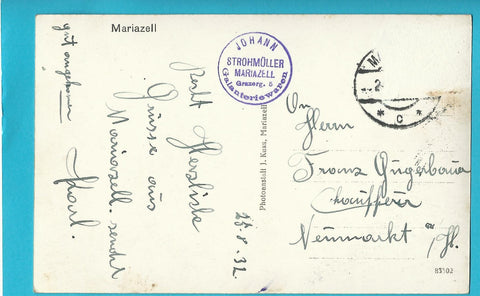 Mariazell
gut angekommen
Recht Herzliche
Grüsse aus
Mariazell sendet
Karl.
25.8.32
JOHANN
STROHMÜLLER
MARIAZELL
Grazerg. 5
Galanteriewaren
Photoanstalt J. Kuss, Mariazell
MA
2
* C *
An
Herrn
Franz Gugerbauer
Chauffeur
Neumarkt
83102